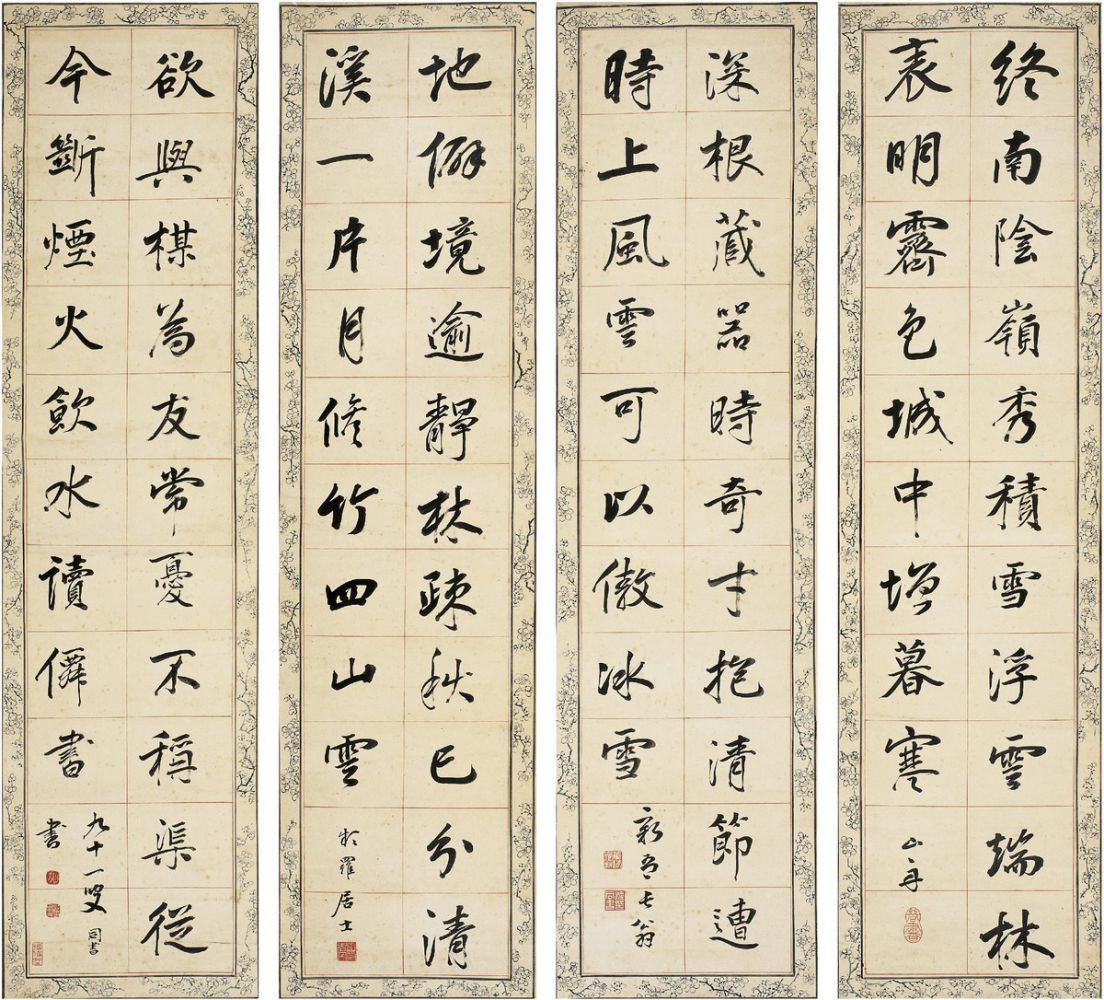 終南陰嶺秀積雪浮雲端林
表明霽色城中增暮寒
山舟
深根藏器時奇才抱清節遭
時上風雲可以傲冰雪
新吾長翁
地僻境逾靜林疎秋已分清
溪一片月修竹四山雲
羅居士
欲與棋為友常憂不稱渠從
今斷煙火飲水讀僊書
九十一叟同書
書